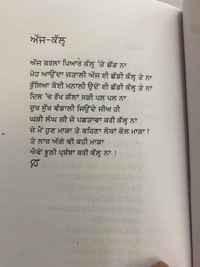 ਅੱਜ-ਕੱਲ੍ਹ
ਅੱਜ ਕਰਲਾ ਪਿਆਰ ਕੱਲ੍ਹ 'ਤੇ ਛੱਡ ਨਾ
ਮੋਹ ਆਉਂਦਾ ਜਤਾਲੀ ਅੱਜ ਈ ਛੱਡੀ ਕੱਲ੍ਹ ਤੇ ਨਾ
ਰੁੱਸਿਆ ਕੋਈ ਮਨਾਲੀ ਉਦੋਂ ਈ ਛੱਡੀ ਕੱਲ੍ਹ ਤੇ ਨਾਂ
ਦਿਲ 'ਚ ਰੱਖ ਗੱਲਾਂ ਸੜੀ ਪਲ ਪਲ ਨਾ
ਦੁਖ ਸੁੱਖ ਵੰਡਾਲੀ ਜਿਉਂਦੇ ਜੀਅ ਹੀ
ਘੜੀ ਲੰਘ ਗੀ ਜੇ ਪਛਤਾਵਾ ਕਰੀ ਕੱਲ੍ਹ ਨਾ
ਜੇ ਮੈਂ ਹੁਣ ਮਾੜਾ ਤੇ ਕਹਿਣਾ ਲੋਕਾਂ ਕੋਲ ਮਾੜਾ !
ਤੇ ਲਾਸ਼ ਅੱਗੇ ਵੀ ਕਹੀ ਮਾੜਾ
ਐਵੇਂ ਝੂਠੀ ਪ੍ਰਸ਼ੰਸਾ ਕਰੀ ਕੱਲ੍ਹ ਨਾ !